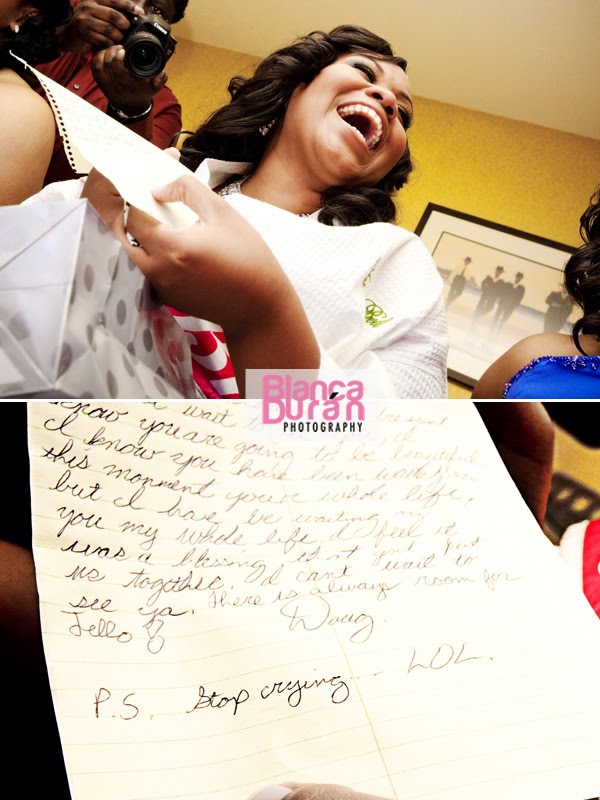 Blanca
Duran
PHOTOGRAPHY
wait
know you are going to be beautiful
I know you have been waiting on
this monment your whole life,
but I have be waiting on
you my whole life, I feel it
was a blessing that god put
us togather. I cant wait to
see ya. There is always room for
Jello
Doug.
P.S. Stop crying... LOL.